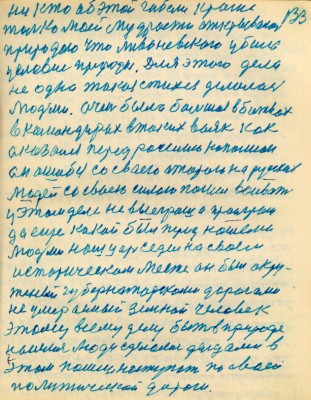 133
ни кто об этой гибели кроме
только моей мудрости открывал
природою что Ливоневского убила
условие природы. Для этого дела
не одно такая стихея делалась
людями. а чем была большая в битвах
в командирах в таких вояк как
оказался перед россиею наполион
он ошибся со своего отпора на русских
людей со своею силою пошли воивать
у этом деле не выеграш а проеграш
да еще какой был перед нашеми
людями наш царь седел на своем
историческом месте он был окру-
женый губернаторскими дорогами
не умерающий земной человек
этому всему делу быть в природе
нашея люди сделалися дедами в
этом пошли наступать по своей
политической дороги.